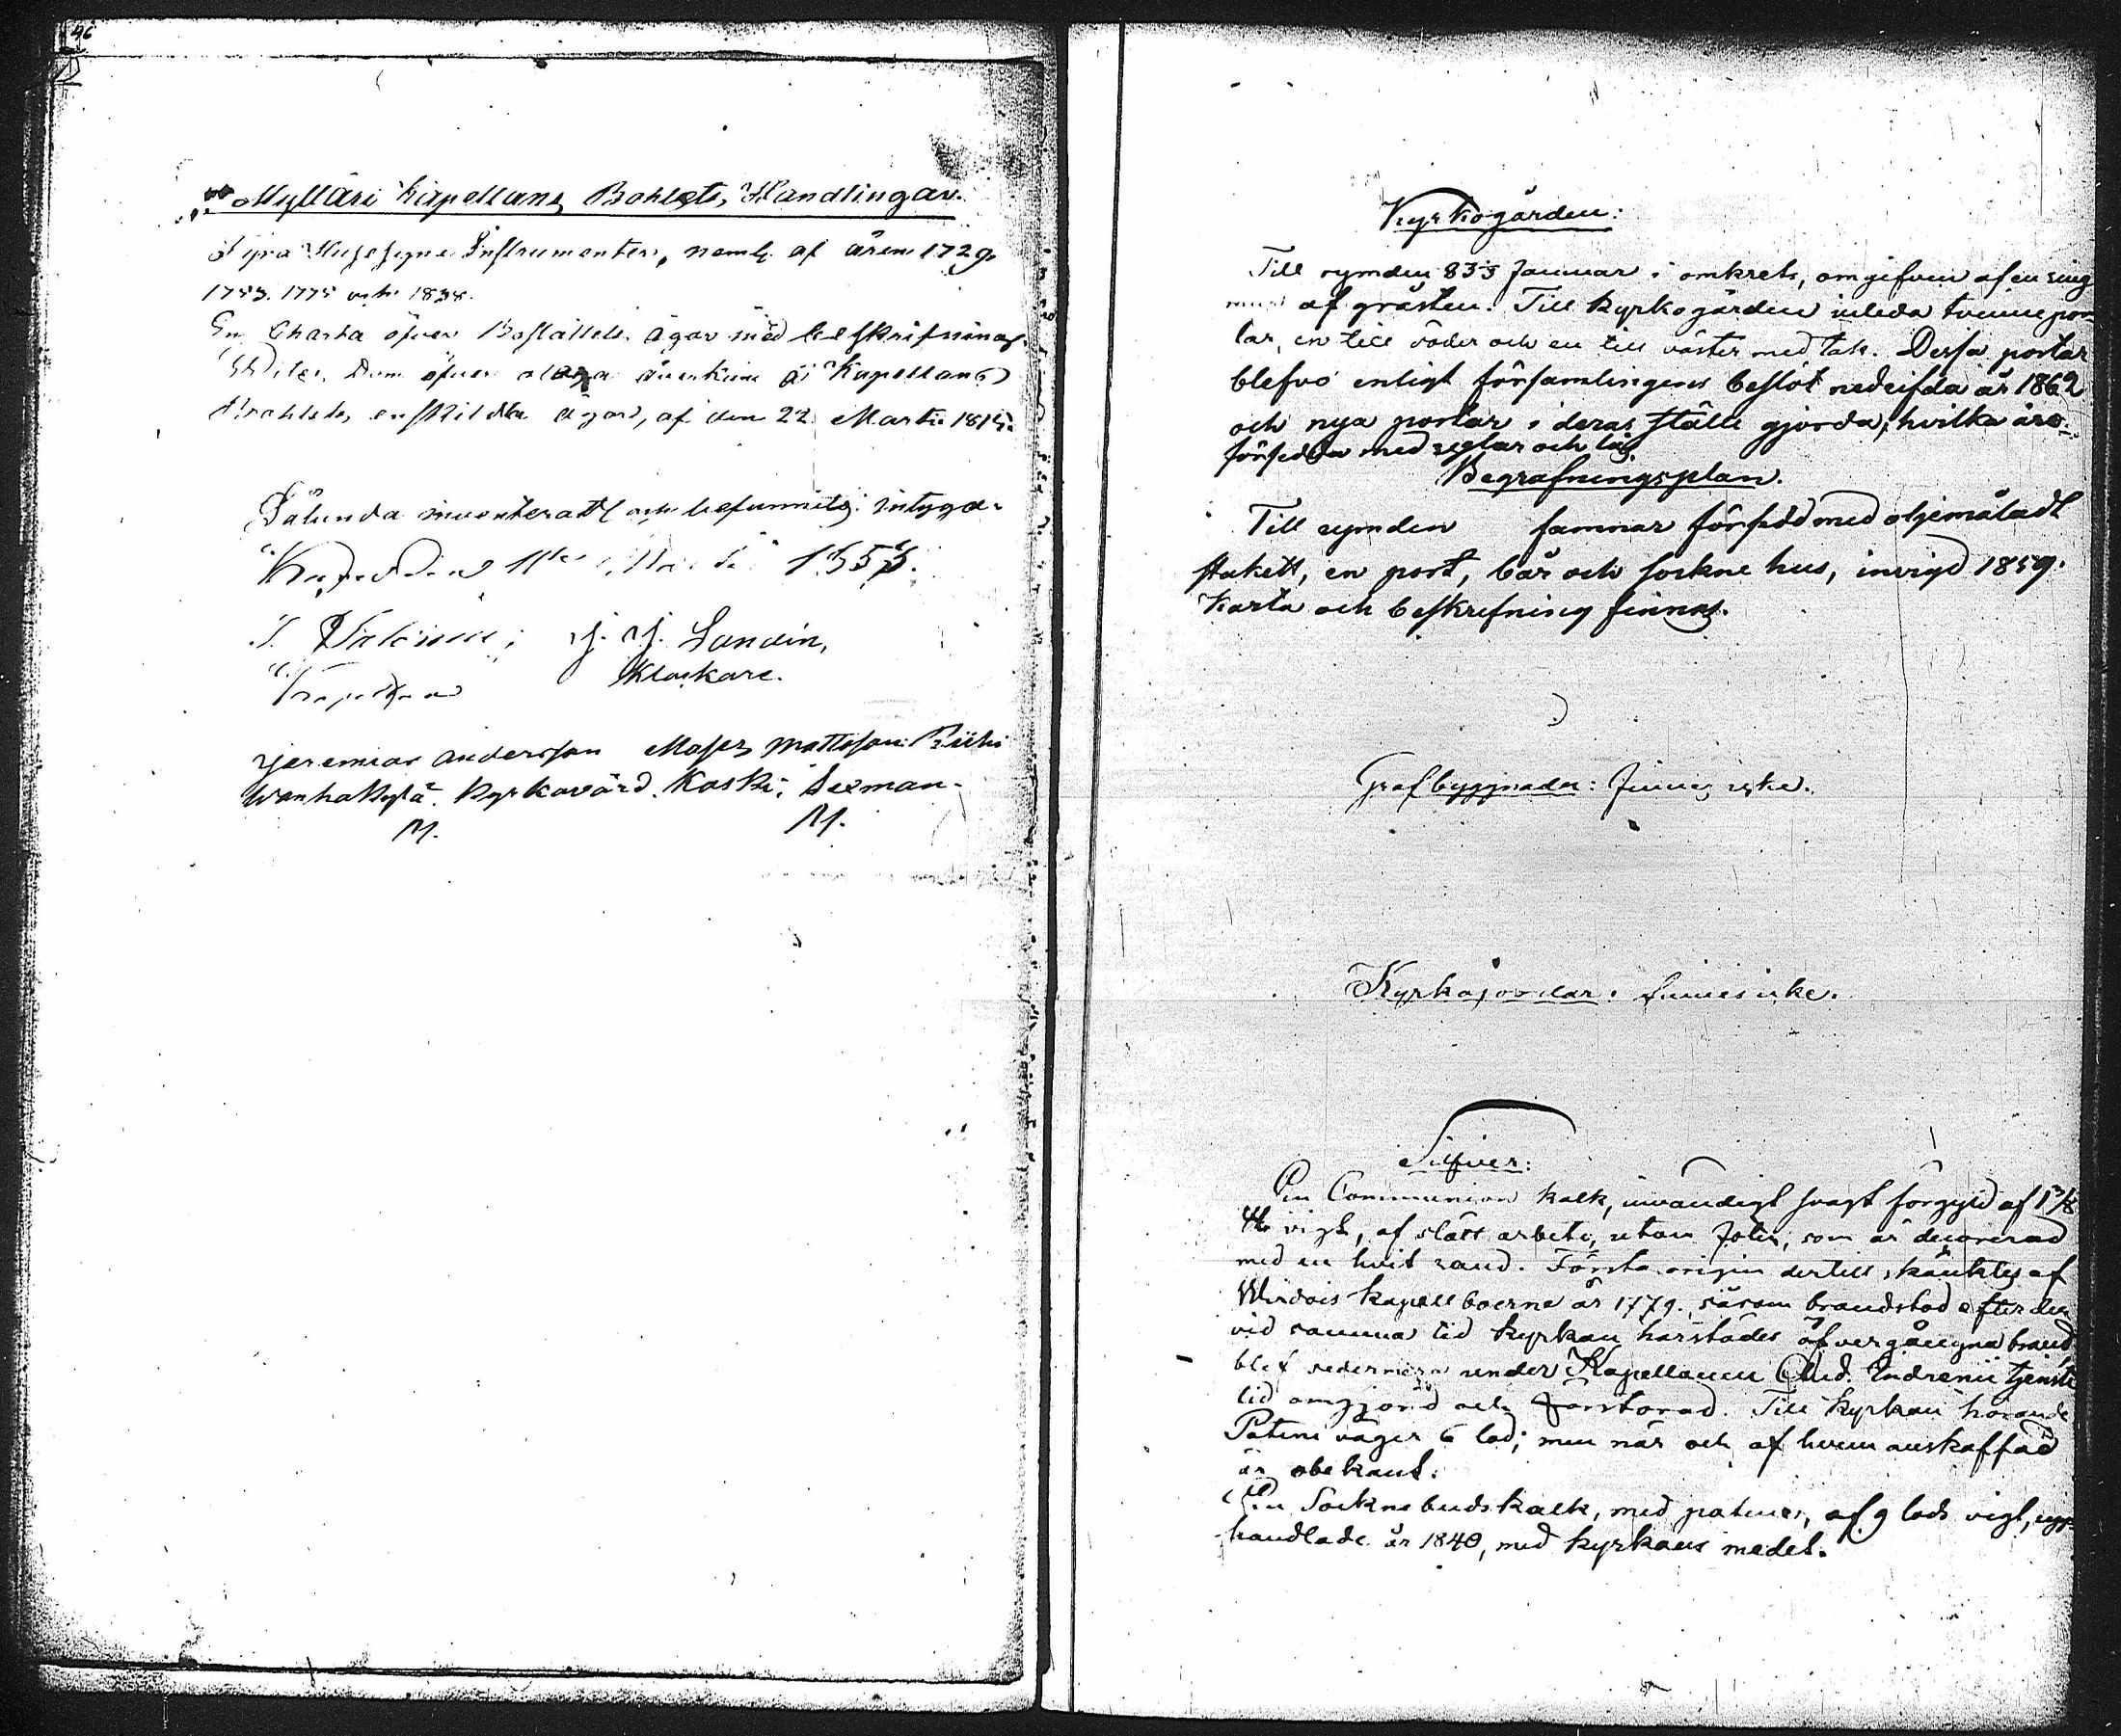 46
Mylläri Kapellans Bohlets Handlingar.
Fyra Husesyns Instrumenter, neml. af åren 1729.
1753. 1775 och 1838.
En Charta öfver Boställets ägor med beskrifning.
öfver åverkan å Kapellans
Bohlets enskildta ägor, af den 22 Martii
Sålunda inventeradt och befunnits; intyga:
J. J. Sandin,
Klockare.
Jeremias Andersson Moses Mattsson Riihi
Wanhakylä. Kyrkovärd. Koski, Sexman.
Kyrkogården:
Till rymden 833 famnar i omkrets, omgifven af en ring
mur af gråsten. Till kyrkogården inleda tvenne por
tar, en till söder och en till väster med tak. Dessa portar
blefvo enligt församlingens beslöt nedrifda år 1862
och nya portar i deras ställe gjorda, hvilka äro
försedda med reglar och lås.
Begrafningsplan.
Till rymden famnar försedd med oljemåladt
stakett, en port, bår och sockne hus, invigd 1859.
Karta och beskrifning finnas.
Grafbyggnader: finnes icke.
Kyrkojordar: finnes icke.
Silfver:
En Communion kalk, invändigt svagt förgyld af 1 3/8
vigt, af slätt arbete, utom foten, som är decorerad
med en hvit rand. Första origin dertill skänktes af
Wirdois kapellboerne år 1779. såsom brandstod efter den
vid samma tid kyrkan härstädes öfvergångna brand,
blef sedermera under Kapellanen And. Indrenii tjenste
tid omgjord och förstorad. Till kyrkan hörande
Paten väger 6 lod; men när och af hvem anskaffad
är obekant.
En Sockne budskalk, med paten, af 9 lods vigt, upp
handlade år 1840, med kyrkans medel.